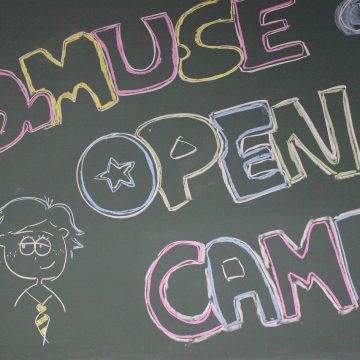 aMUSE
OPEN
CAM